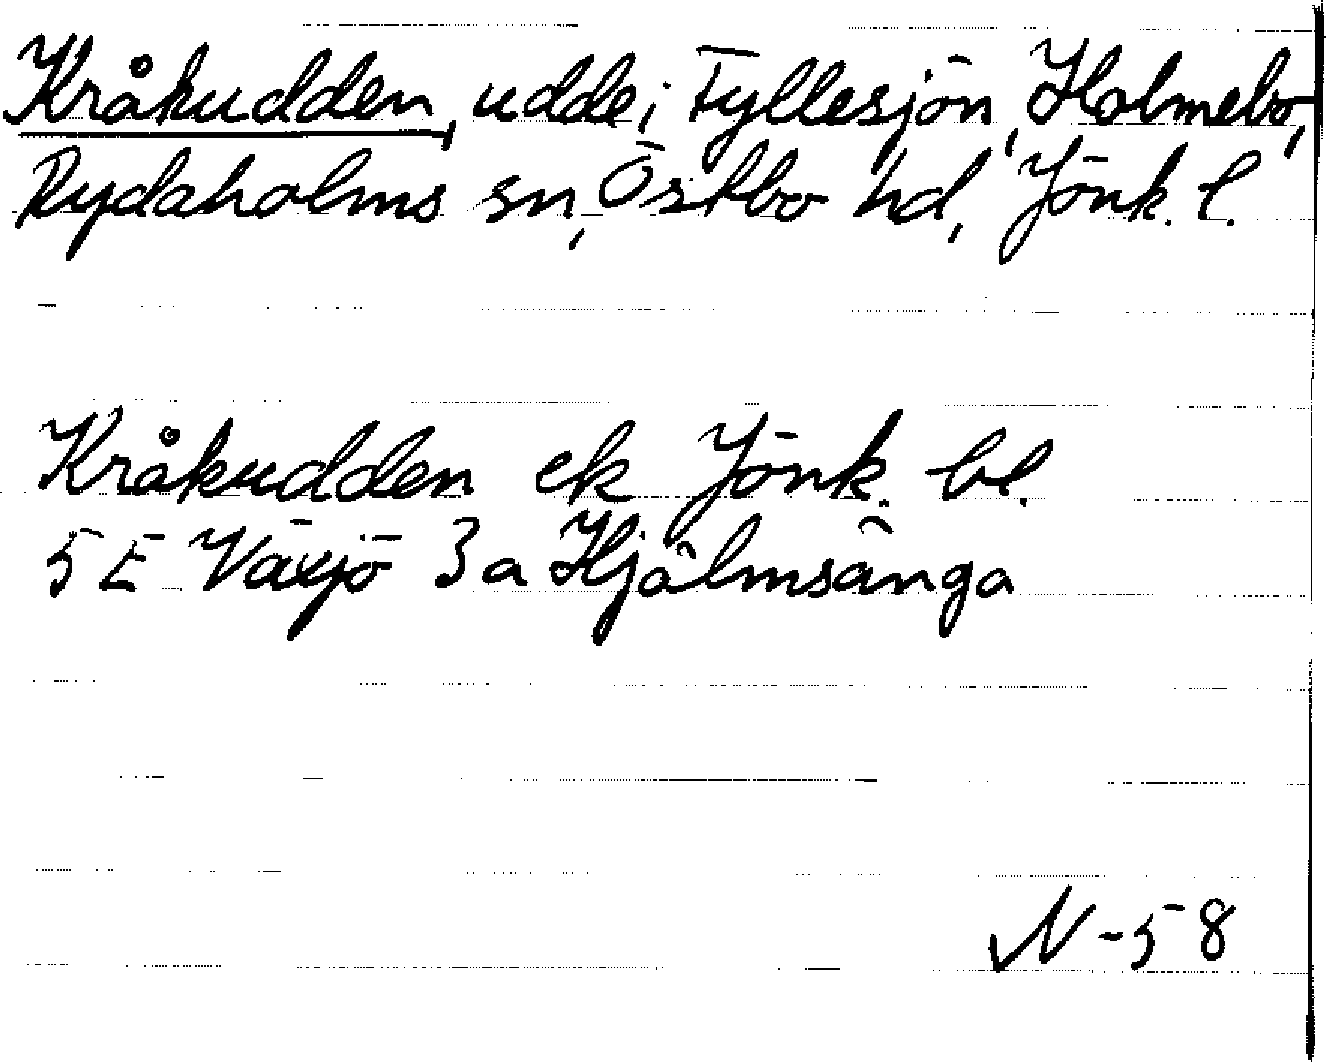 Kråkudden, udde i Fyllesjön, Holmebo,
Rydaholms sn, Östbo hd, Jönk. l.
Kråkudden ek Jönk. bl.
5 E Växjö 3 a Hjälmsänga
N-58